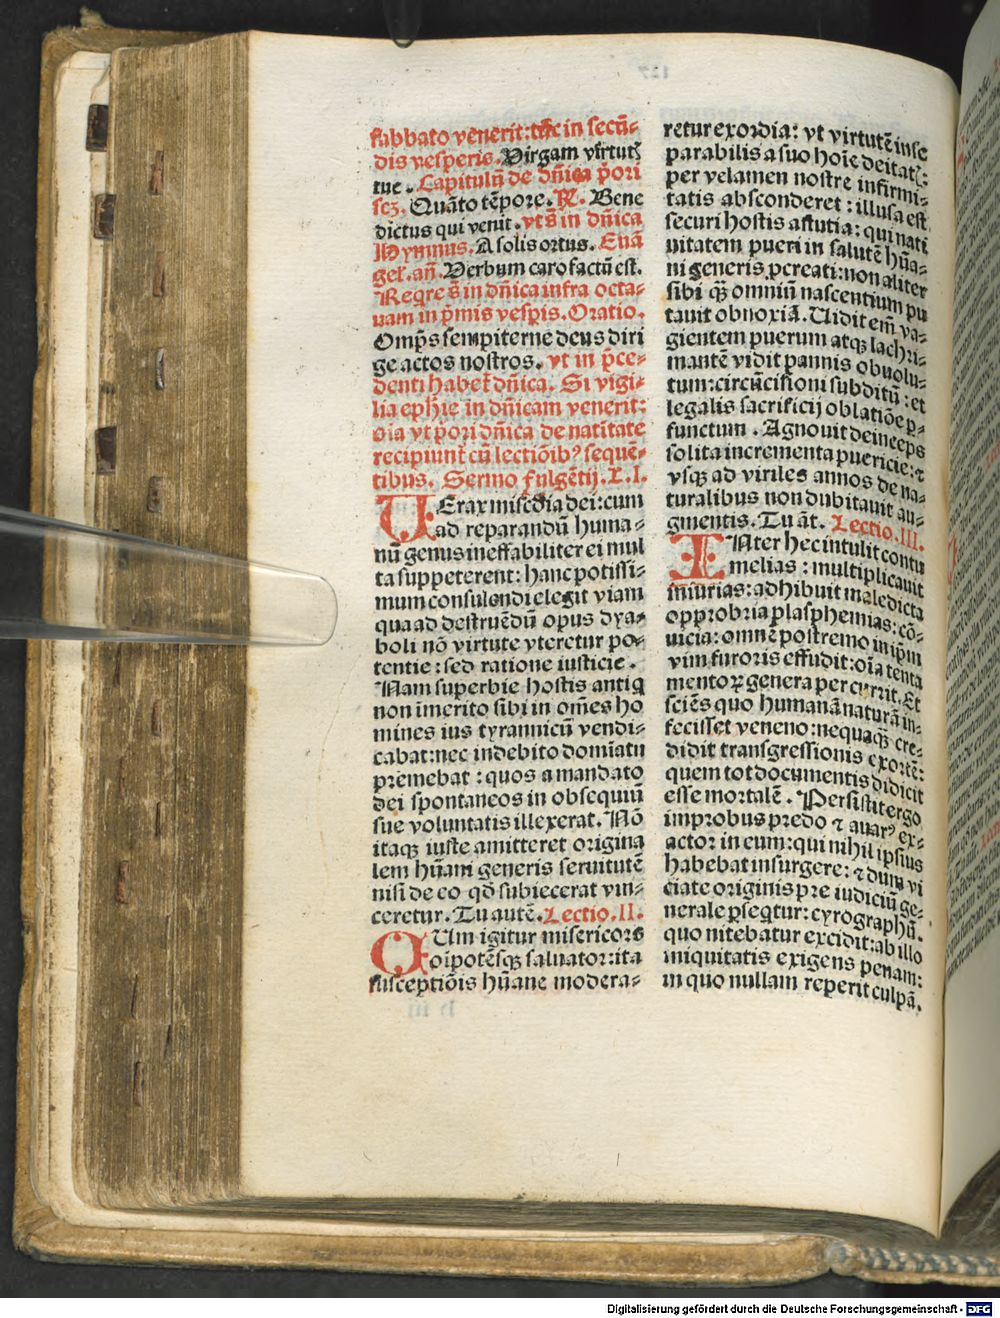 sabbato venerit: tūc in secū-
dis vesperis. Virgam virtutꝭ
tue. Capitulū de dn̄ica p̄ori
scꝫ. Quāto tēpore. ꝶ. Bene
dictus qui venit. vt s̄ in dn̄ica
Hymnus. A solis ortus. Euā
gel̄. an̄. Verbum caro factū est.
Reqre s̄ in dn̄ica infra octa-
uam in p̄mis vesp̄is. Oratio.
Omp̄s sempiterne deus diri
ge actos nostros. vt in p̄ce-
denti habet̄ dn̄ica. Si vigi-
lia ephīe in dn̄icam venerit:
oīa vt p̄ori dn̄ica de natītate
recipiunt̄ cū lectiōibꝰ sequē-
tibus. Sermo fulgētij. L. I.
VErax misc̄dia dei: cum
ad reparandū huma-
nū genus ineffabiliter ei mul
ta suppeterent: hanc potissi-
mum consulendi elegit viam
qua ad destruēdū opus dya-
boli nō virtute vteretur po-
tentie: sed ratione iusticie.
Nam superbie hostis antiq
non imerito sibi in om̄es ho
mines ius tyrannicū vendi-
cabat: nec indebito domīatu
p̄remebat: quos a mandato
dei spontaneos in obsequiū
sue voluntatis illexerat. Nō
itaqꝫ iuste amitteret origina
lem hūani generis seruitutē
nisi de eo qd̄ subiecerat vin-
ceretur. Tu autē. Lectio. II.
QUm igitur misericors
oīpotēsqꝫ saluator: ita
susceptiōis hūane modera-
retur exordia: vt virtutē inse
parabilis a suo hoīe deitatꝭ:
per velamen nostre infirmi-
tatis absconderet: illusa est
securi hostis astutia: qui nati
uitatem pueri in salutē hūa-
ni generis ꝓcreati: non aliter
sibi qꝫ omniū nascentium pu
tauit obnoxiā. Uidit em̄ va-
gientem puerum atqꝫ lachri-
mantē vidit pannis obuolu-
tum: circūcisioni subditū: et
legalis sacrificij oblatiōe ꝑ-
functum. Agnouit deinceps
solita incrementa puericie: ⁊
vsqꝫ ad viriles annos de na-
turalibus non dubitauit au-
gmentis. Tu āt. Lectio. III.
INter hec intulit contu
melias: multiplicauit
iniurias: adhibuit maledicta
opprobria plasphemias: cō-
uicia: omnē postremo in ip̄m
vim furoris effudit: oīa tenta
mentoꝝ genera percurrit. Et
sciēs quo humanā naturā in-
fecisset veneno: nequaqꝫ cre-
didit transgressionis exortē:
quem tot documentis didicit
esse mortalē. Persistit ergo
improbus predo ⁊ auarꝰ ex-
actor in eum: qui nihil ipsius
habebat insurgere: ⁊ dum vi
ciate originis preiudiciū ge-
nerale ꝑseqtur: cyrographū.
quo nitebatur excidit: ab illo
iniquitatis exigens penam:
in quo nullam reperit culpā.
Digitalisierung gefördert durch die Deutsche Forschungsgemeinschaft - DFG